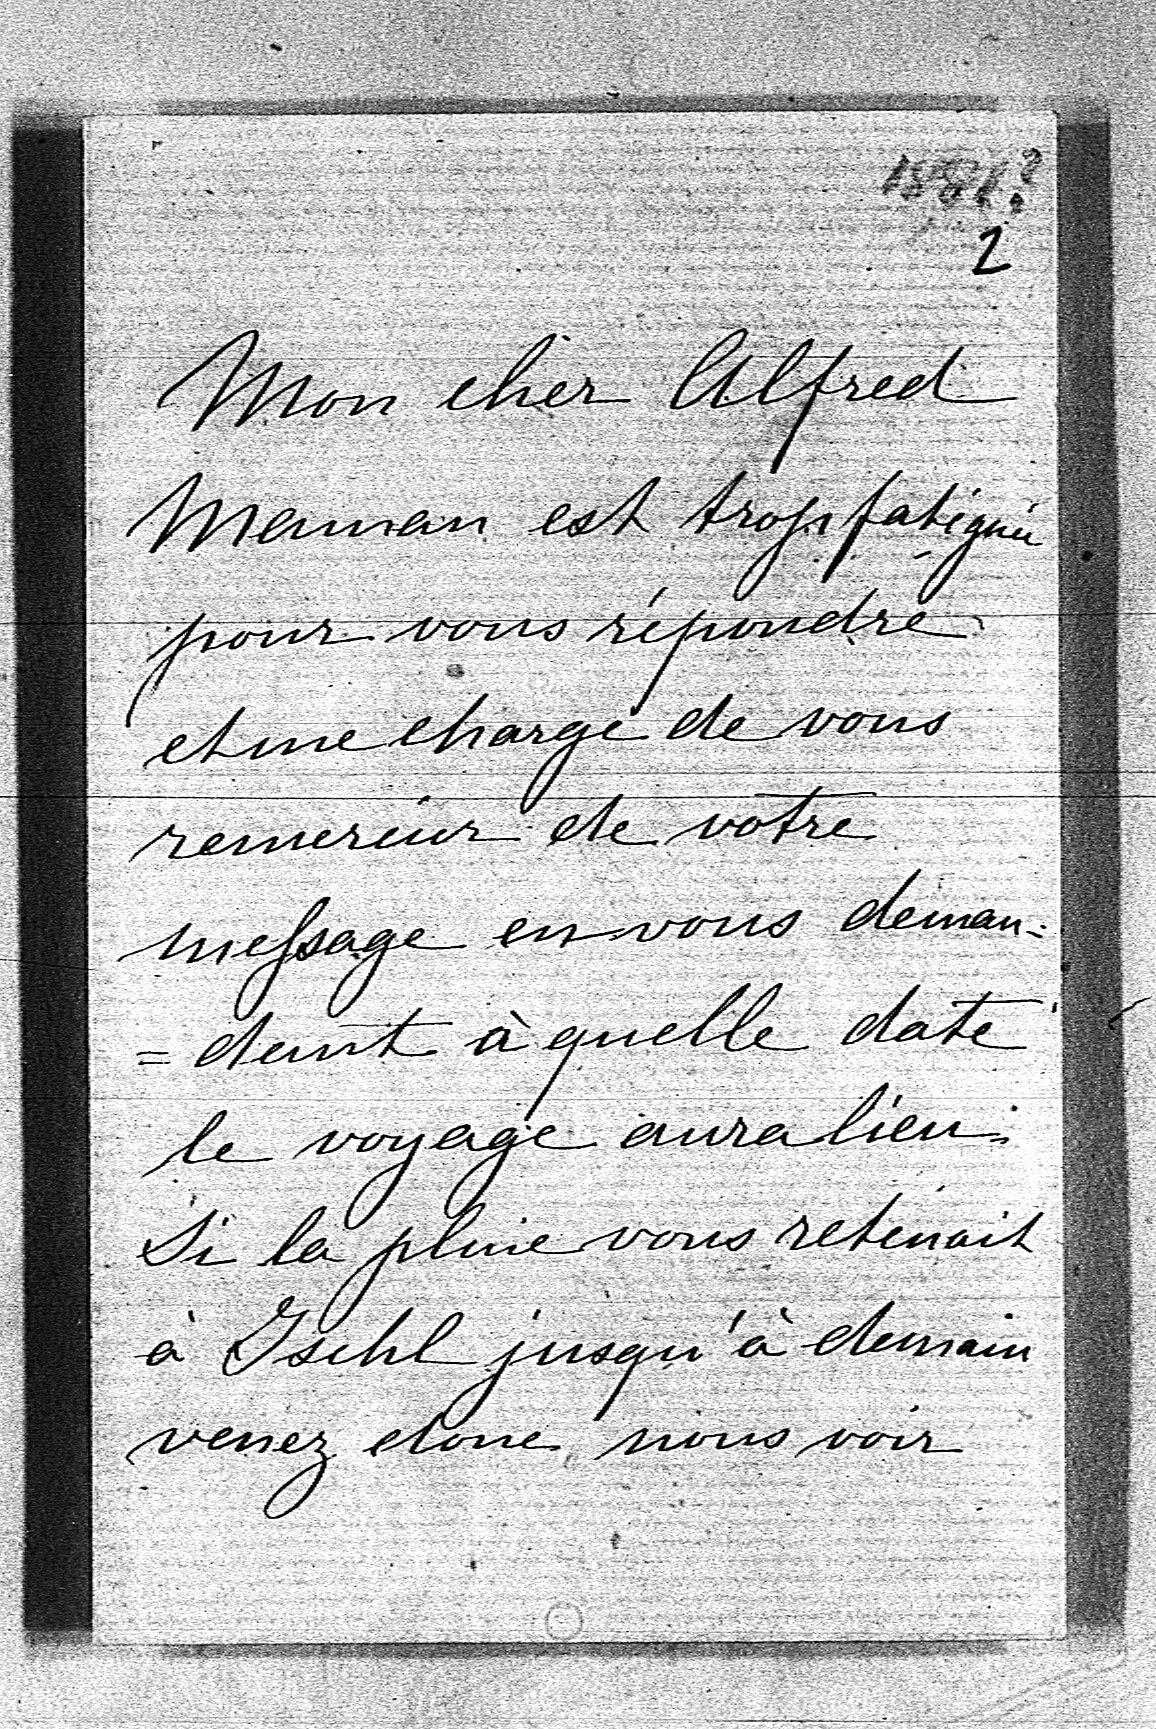 1881?
2
Mon cher Alfred
Maman est trop fatiguée
pour vous répondre
et me charge de vous
remercier de votre
message en vous deman-
=dant à quelle date
le voyage aura lieu.
Si la pluie vous retenait
à Ischl jusqu'à demain
venez donc nous voir